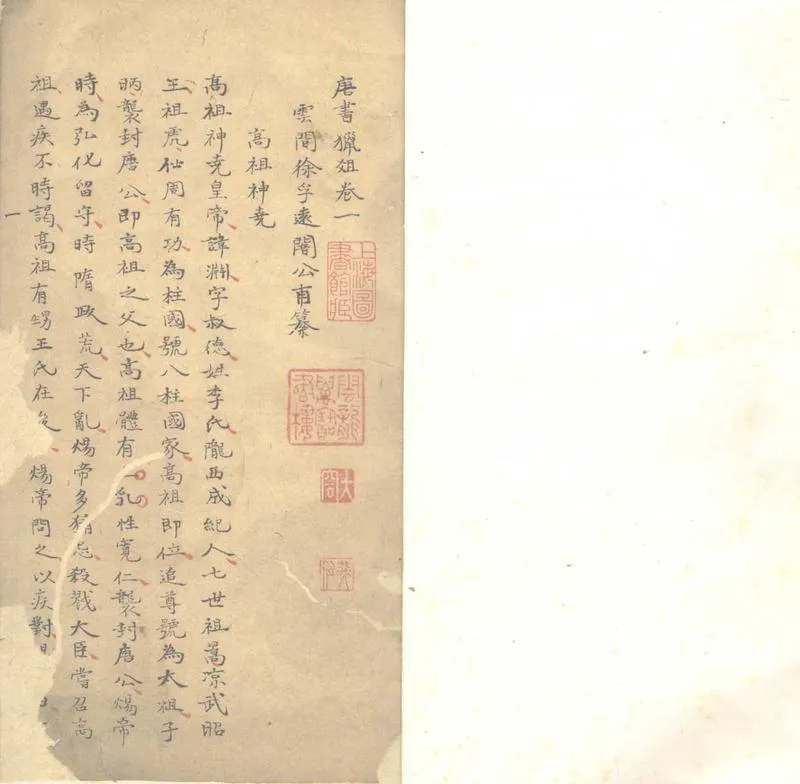 唐書獵俎卷一
雲間徐孚遠闇公甫纂
高祖神堯
高祖神堯皇帝諱淵字叔德姓李氏隴西成紀人七世祖暠凉武昭
王祖虎佐周有功為柱國號八柱國家高祖即位追尊號為太祖子
昞襲封唐公即高祖之父也高祖體有乳性寬仁襲封唐公煬帝
時為弘化留守時隋政荒天下亂煬帝多猜忌殺戮大臣嘗召高
祖遇疾不時謁高祖有甥王氏在後煬帝問之以疾對
一
上海圖書館藏